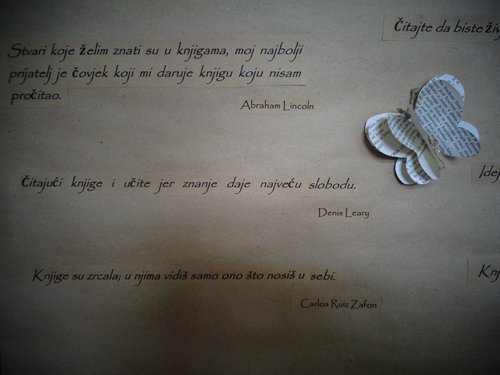 Čitajte da biste
Stvari koje želim znati su u knjigama, moj najbolji
prijatelj je čovjek koji mi daruje knjigu koju nisam
pročitao.
Abraham Lincoln
Čitajući knjige i učite jer znanje daje najveću slobodu.
Denis Leary
Knjige su zrcala; u njima vidiš samo ono što nosiš u sebi.
Carlos Ruiz Zafon